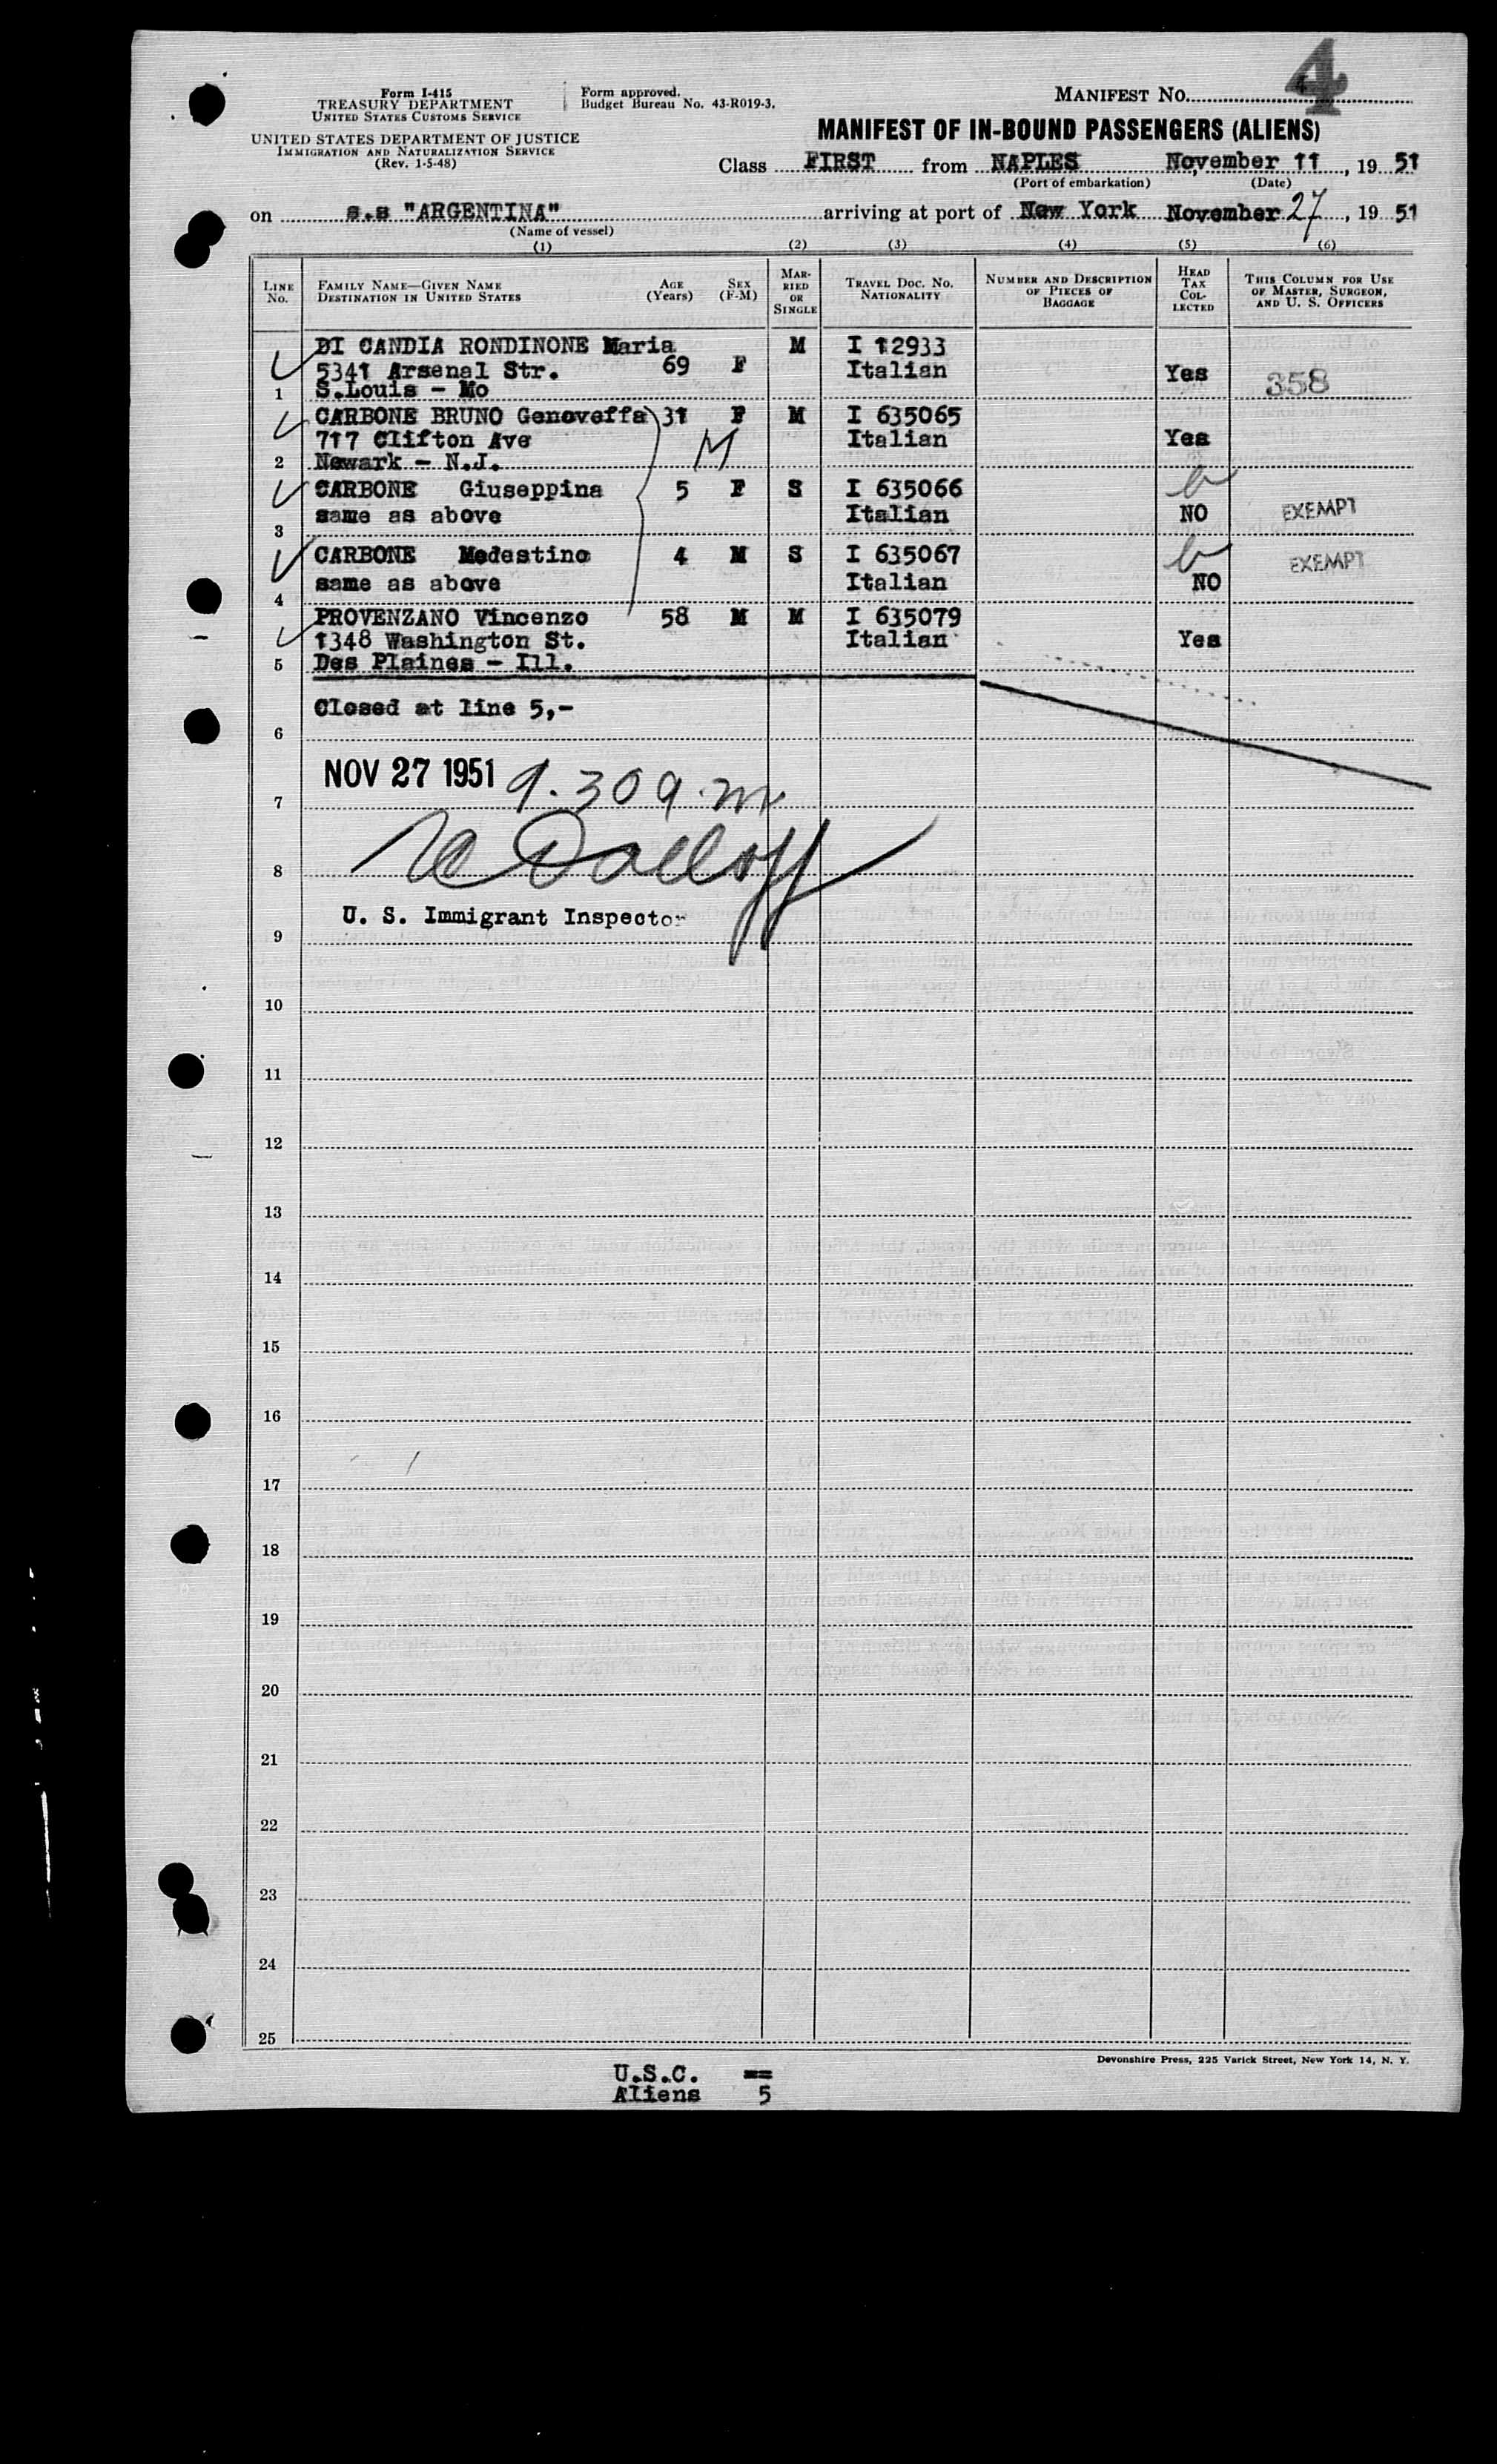 4
Form I-415
TREASURY DEPARTMENT
UNITED STATES CUSTOMS SERVICE
UNITED STATES DEPARTMENT OF JUSTICE
IMMIGRATION AND NATURALIZATION SERVICE
(Rev. 1-5-48)
Form approved.
Budget Bureau No. 43-R019-3.
MANIFEST NO.
MANIFEST OF IN-BOUND PASSENGERS (ALIENS)
Class FIRST from NAPLES November 11, 19 51
(Port of embarkation) (Date)
on s.s "ARGENTINA" arriving at port of New York November 27, 19 51
(Name of vessel)
(1) (2) (3) (4) (5) (6)
LINE No. FAMILY NAME—GIVEN NAME DESTINATION IN UNITED STATES AGE (Years) SEX (F-M) MARRIED OR SINGLE TRAVEL DOC. NO. NATIONALITY NUMBER AND DESCRIPTION OF PIECES OF BAGGAGE HEAD TAX COLLECTED THIS COLUMN FOR USE OF MASTER, SURGEON, AND U. S. OFFICERS
DI CANDIA RONDINONE Maria M I 12933
5341 Arsenal Str. 69 F Italian Yes 358
1 S.Louis - Mo
CARBONE BRUNO Genoveffa 31 F M I 635065
717 Clifton Ave M Italian Yes
2 Newark - N.J.
CARBONE Giuseppina 5 F S I 635066
same as above Italian NO EXEMPT
3
CARBONE Modestino 4 M S I 635067 EXEMPT
same as above Italian NO
4
PROVENZANO Vincenzo 58 M M I 635079
1348 Washington St. Italian Yes
5 Des Plaines - Ill.
Closed at line 5,-
6
NOV 27 1951 9.30 a.m
7
8
U. S. Immigrant Inspector
9
10
11
12
13
14
15
16
17
18
19
20
21
22
23
24
25
Devonshire Press, 225 Varick Street, New York 14, N. Y.
U.S.C. ==
Aliens 5